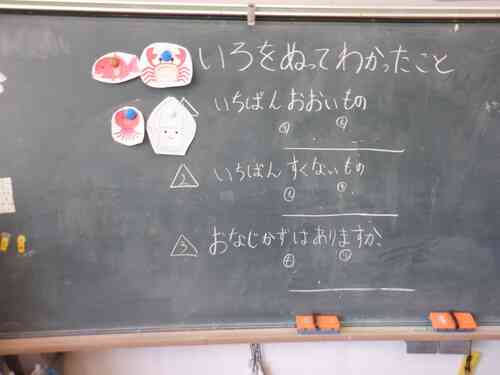 いろをぬってわかったこと
いちばんおおいもの
2 いちばんすくないもの
3 おなじかずはありますか